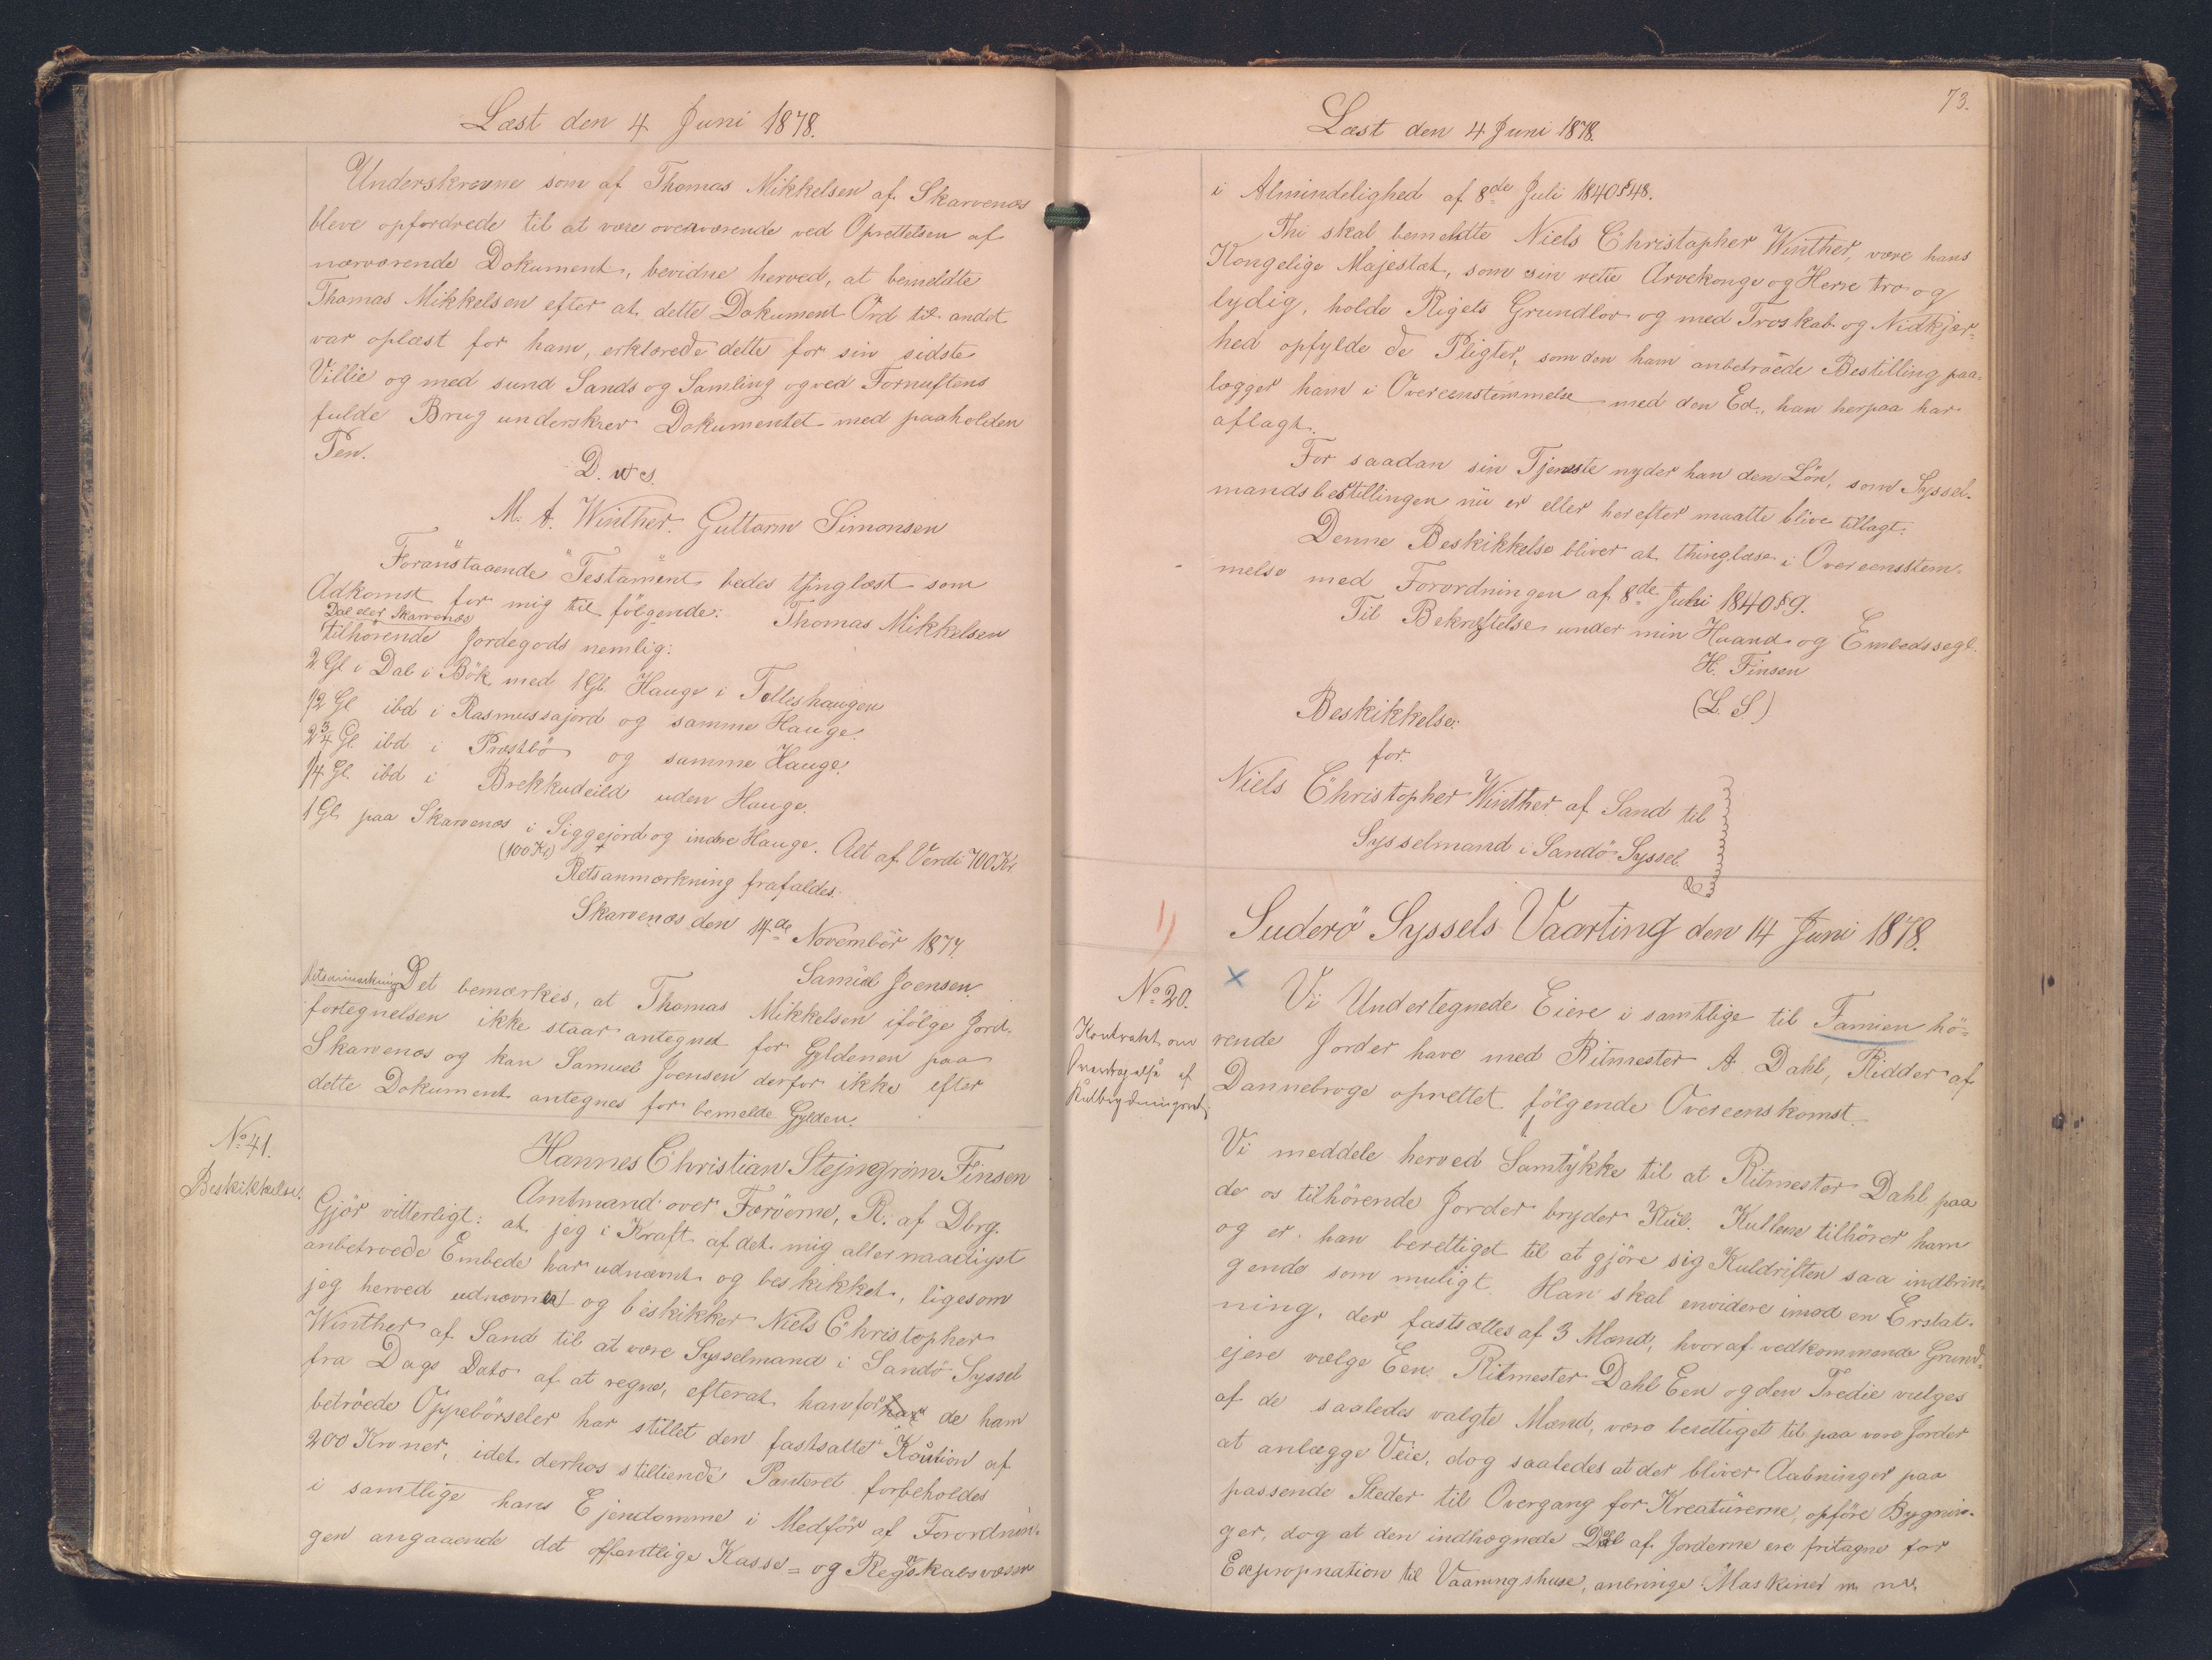 Læst den 4 Juni 1878.
Underskrevne som af Thomas Mikkelsen af Skarvenæs
bleve opfordrede til at være overværende ved Oprettelsen af
nærværende Dokument, bevidne herved, at bemeldte
Thomas Mikkelsen efter at dette Dokument Ord til andet
var oplæst for ham, erklærede dette for sin sidste
Villie og med sund Sands og Samling og ved Fornuftens
fulde Brug underskrev Dokumentet med paaholden
Pen.
D. u S.
M. A. Winther. Guttorm Simonsen
Foranstaaende Testament bedes thinglæst som
Adkomst for mig til følgende: Thomas Mikkelsen
Dal eller Skarvenæs
tilhørende Jordegods nemlig:
2 Gl i Dal i Bøk med 1 Gl. Hauge i Felleshaugen
1/2 Gl ibd i Rasmussajord og samme Hauge.
2 3/4 Gl ibd i Præstbø og samme Hauge.
1/4 Gl ibd i Brekkudeild uden Hauge.
1 Gl paa Skarvenæs i Siggejord og indre Hauge. Alt af Verdi 700 Kr.
(100 Kr) +
Retsanmærkning frafaldes.
Skarvenæs den 14de November 1877.
Samuel Joensen.
Retsanmærkning Det bemærkes, at Thomas Mikkelsen ifølge Jord-
fortegnelsen ikke staar antegnet for Gyldenen paa
Skarvenæs og kan Samuel Joensen derfor ikke efter
dette Dokument antegnes for bemeldte Gylden.
No 41.
Beskikkelse.
Hannes Christian Stejngrim Finsen
Amtmand over Færöerne, R. af Dbrg.
Gjör vitterligt: at jeg i Kraft af det mig allernaadigst
anbetroede Embede har udnævnt og beskikket, ligesom
jeg herved udnævner og beskikker Niels Christopher
Winther af Sand til at være Sysselmand i Sandö Syssel
fra Dags Dato af at regne, efterat han for har de ham
betroede Oppebörseler har stillet den fastsatte Kaution af
200 Kroner, idet derhos stiltiende Panteret forbeholdes
i samtlige hans Ejendomme i Medför af Forordnin-
gen angaaende det offentlige Kasse- og Regnskabsvæsen
73.
Læst den 4 Juni 1878.
i Almindelighed af 8de Juli 1840 § 48.
Thi skal bemeldte Niels Christopher Winther, være hans
Kongelige Majestæt, som sin rette Arvekonge og Herre tro og
lydig, holde Rigets Grundlov og med Troskab og Nidkjær-
hed opfylde de Pligter, som den ham anbetroede Bestilling paa-
lægger ham i Overeensstemmelse med den Ed, han herpaa har
aflagt.
For saadan sin Tjeneste nyder han den Lön, som Syssel-
mandsbestillingen nu er eller herefter maatte blive tillagt.
Denne Beskikkelse bliver at thinglæse i Overeensstem-
melse med Forordningen af 8de Juli 1840 § 9.
Til Bekræftelse under min Haand og Embedssegl.
H. Finsen
(L. S)
Beskikkelse.
for
Niels Christopher Winther af Sand til
Sysselmand i Sandö Syssel.
1)
Suderö Syssels Vaarting den 14 Juni 1878.
No 20.
Kontrakt om
Overdragelse af
Kulbrydningsret.
Vi Undertegnede Eiere i samtlige til Famien hö-
rende Jorder have med Ritmester A. Dahl, Ridder af
Dannebroge oprettet følgende Overeenskomst.
Vi meddele herved Samtykke til at Ritmester Dahl paa
de os tilhörende Jorder bryder Kul. Kullene tilhører ham
og er han berettiget til at gjöre sig Kuldriften saa indbrin-
gende som muligt. Han skal envidere imod en Erstat-
ning, der fastsættes af 3 Mænd, hvoraf vedkommende Grund-
ejere vælge Een, Ritmester Dahl Een og den Tredie vælges
af de saaledes valgte Mænd, være berettiget til paa vore Jorder
at anlægge Veie, dog saaledes at der bliver Aabninger paa
passende Steder til Overgang for Kreaturerne, opföre Bygnin-
ger, dog at den indhegnede Deel af Jorderne ere fritagne for
Expropriation til Vaaningshuse, anbringe Maskiner m m,